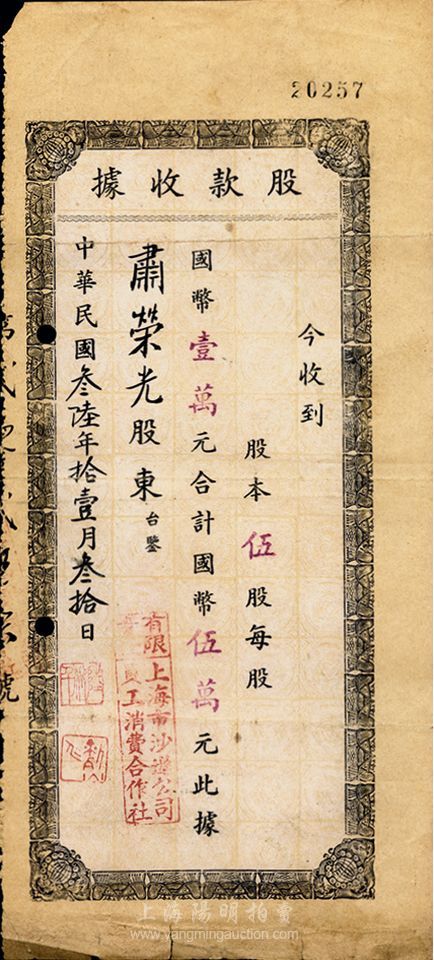 20257
股款收據
今收到
股本伍股每股
國幣壹萬元合計國幣伍萬元此據
肅榮光股東台鑒
中華民國叁陸年拾壹月叁拾日
有限
上海市沙遜公司
員工消費合作社
號
上海陽明拍賣
www.yangmingauction.com